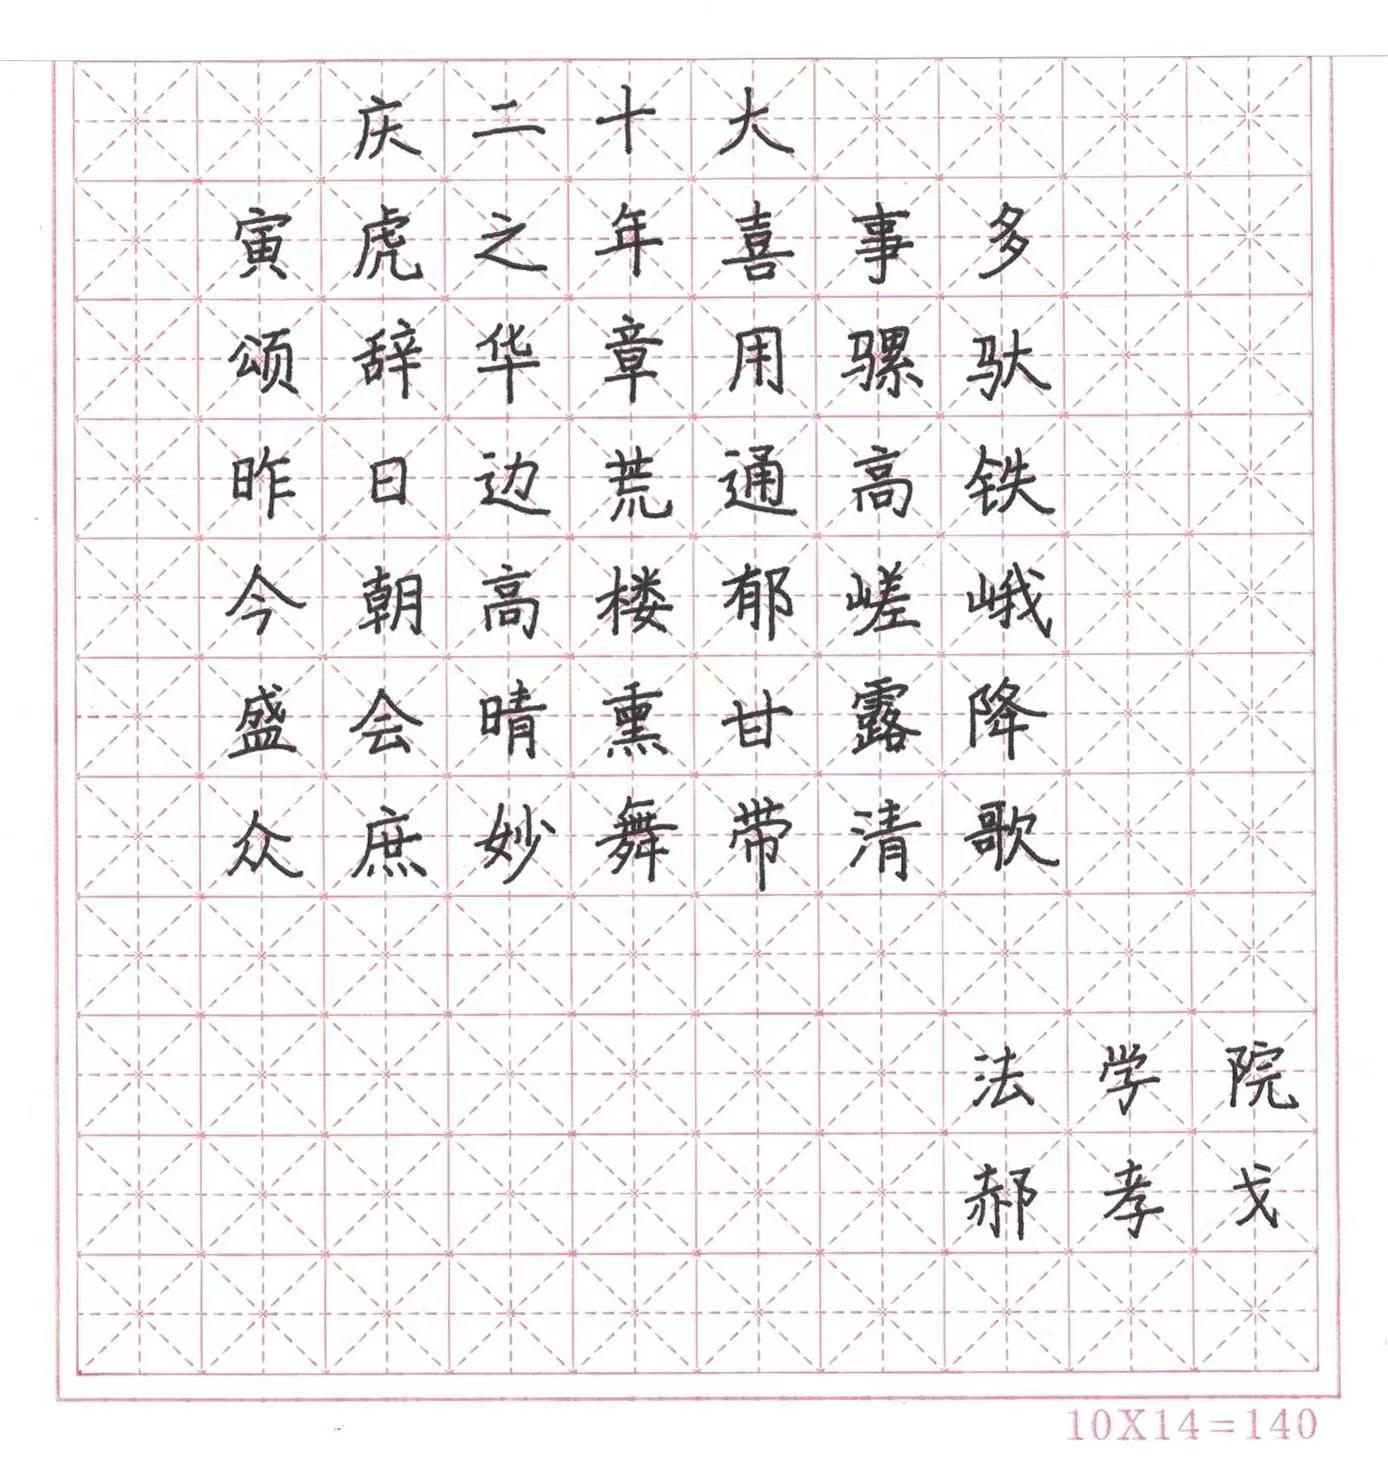 庆二十大
寅虎之年喜事多
颂辞华章用骡驮
昨日边荒通高铁
今朝高楼郁嵯峨
盛会晴熏甘露降
众庶妙舞带清歌
法学院
郝孝戈
10X14=140